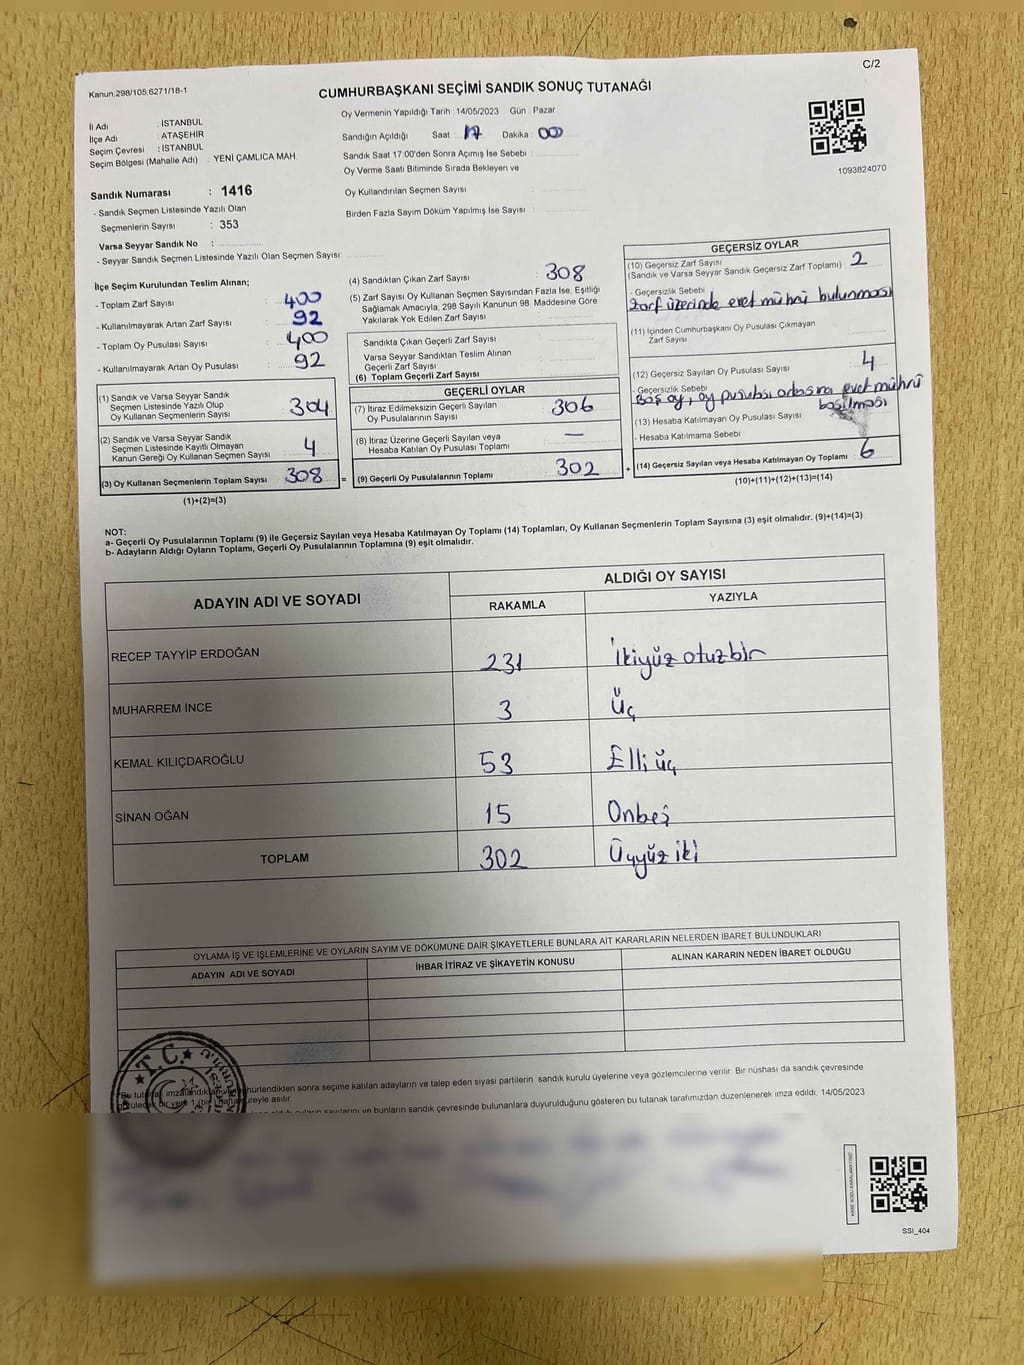 C/2
Kanun,298/105,6271/18-1
CUMHURBAŞKANI SEÇİMİ SANDIK SONUÇ TUTANAĞI
İl Adı : İSTANBUL
İlçe Adı : ATAŞEHİR
Seçim Çevresi : İSTANBUL
Seçim Bölgesi (Mahalle Adı) : YENİ ÇAMLICA MAH.
Sandık Numarası : 1416
- Sandık Seçmen Listesinde Yazılı Olan
Seçmenlerin Sayısı : 353
Varsa Seyyar Sandık No :
- Seyyar Sandık Seçmen Listesinde Yazılı Olan Seçmen Sayısı:
Oy Vermenin Yapıldığı Tarih : 14/05/2023 Gün : Pazar
Sandığın Açıldığı Saat : 17 Dakika 00
Sandık Saat 17:00'den Sonra Açımış İse Sebebi :
Oy Verme Saati Bitiminde Sırada Bekleyen ve
Oy Kullandırılan Seçmen Sayısı :
Birden Fazla Sayım Döküm Yapılmış İse Sayısı :
1093824070
İlçe Seçim Kurulundan Teslim Alınan;
- Toplam Zarf Sayısı : 400
- Kullanılmayarak Artan Zarf Sayısı : 92
- Toplam Oy Pusulası Sayısı : 400
- Kullanılmayarak Artan Oy Pusulası : 92
(1) Sandık ve Varsa Seyyar Sandık
Seçmen Listesinde Yazılı Olup
Oy Kullanan Seçmenlerin Sayısı : 304
(2) Sandık ve Varsa Seyyar Sandık
Seçmen Listesinde Kayıtlı Olmayan
Kanun Gereği Oy Kullanan Seçmen Sayısı : 4
(3) Oy Kullanan Seçmenlerin Toplam Sayısı : 308
(1)+(2)=(3)
(4) Sandıktan Çıkan Zarf Sayısı : 308
(5) Zarf Sayısı Oy Kullanan Seçmen Sayısından Fazla İse, Eşitliği
Sağlamak Amacıyla, 298 Sayılı Kanunun 98. Maddesine Göre
Yakılarak Yok Edilen Zarf Sayısı :
Sandıkta Çıkan Geçerli Zarf Sayısı :
Varsa Seyyar Sandıktan Teslim Alınan
Geçerli Zarf Sayısı :
(6) Toplam Geçerli Zarf Sayısı :
GEÇERLİ OYLAR
(7) İtiraz Edilmeksizin Geçerli Sayılan
Oy Pusulalarının Sayısı : 306
(8) İtiraz Üzerine Geçerli Sayılan veya
Hesaba Katılan Oy Pusulası Toplamı : —
= (9) Geçerli Oy Pusulalarının Toplamı : 302
GEÇERSİZ OYLAR
(10) Geçersiz Zarf Sayısı
(Sandık ve Varsa Seyyar Sandık Geçersiz Zarf Toplamı) : 2
- Geçersizlik Sebebi
Zarf üzerinde evet mührü bulunması
(11) İçinden Cumhurbaşkanı Oy Pusulası Çıkmayan
Zarf Sayısı
(12) Geçersiz Sayılan Oy Pusulası Sayısı : 4
- Geçersizlik Sebebi
Boş oy, oy pusulası arkasına evet mührü
basılması
(13) Hesaba Katılmayan Oy Pusulası Sayısı
- Hesaba Katılmama Sebebi
(14) Geçersiz Sayılan veya Hesaba Katılmayan Oy Toplamı : 6
(10)+(11)+(12)+(13)=(14)
NOT:
a- Geçerli Oy Pusulalarının Toplamı (9) ile Geçersiz Sayılan veya Hesaba Katılmayan Oy Toplamı (14) Toplamları, Oy Kullanan Seçmenlerin Toplam Sayısına (3) eşit olmalıdır. (9)+(14)=(3)
b- Adayların Aldığı Oyların Toplamı, Geçerli Oy Pusulalarının Toplamına (9) eşit olmalıdır.
ADAYIN ADI VE SOYADI
ALDIĞI OY SAYISI
RAKAMLA YAZIYLA
RECEP TAYYİP ERDOĞAN 231 İkiyüz otuzbir
MUHARREM İNCE 3 Üç
KEMAL KILIÇDAROĞLU 53 Elli üç
SİNAN OĞAN 15 Onbeş
TOPLAM 302 Üçyüz iki
OYLAMA İŞ VE İŞLEMLERİNE VE OYLARIN SAYIM VE DÖKÜMÜNE DAİR ŞİKAYETLERLE BUNLARA AİT KARARLARIN NELERDEN İBARET BULUNDUKLARI
ADAYIN ADI VE SOYADI İHBAR İTİRAZ VE ŞİKAYETİN KONUSU ALINAN KARARIN NEDEN İBARET OLDUĞU
T.C.
Bu tutanak imzalandıktan ve mühürlendikten sonra seçime katılan adayların ve talep eden siyasi partilerin sandık kurulu üyelerine veya gözlemcilerine verilir. Bir nüshası da sandık çevresinde
süreyle asılır.
oyların sayılarını ve bunların sandık çevresinde bulunanlara duyurulduğunu gösteren bu tutanak tarafımızdan düzenlenerek imza edildi. 14/05/2023
SSI_404